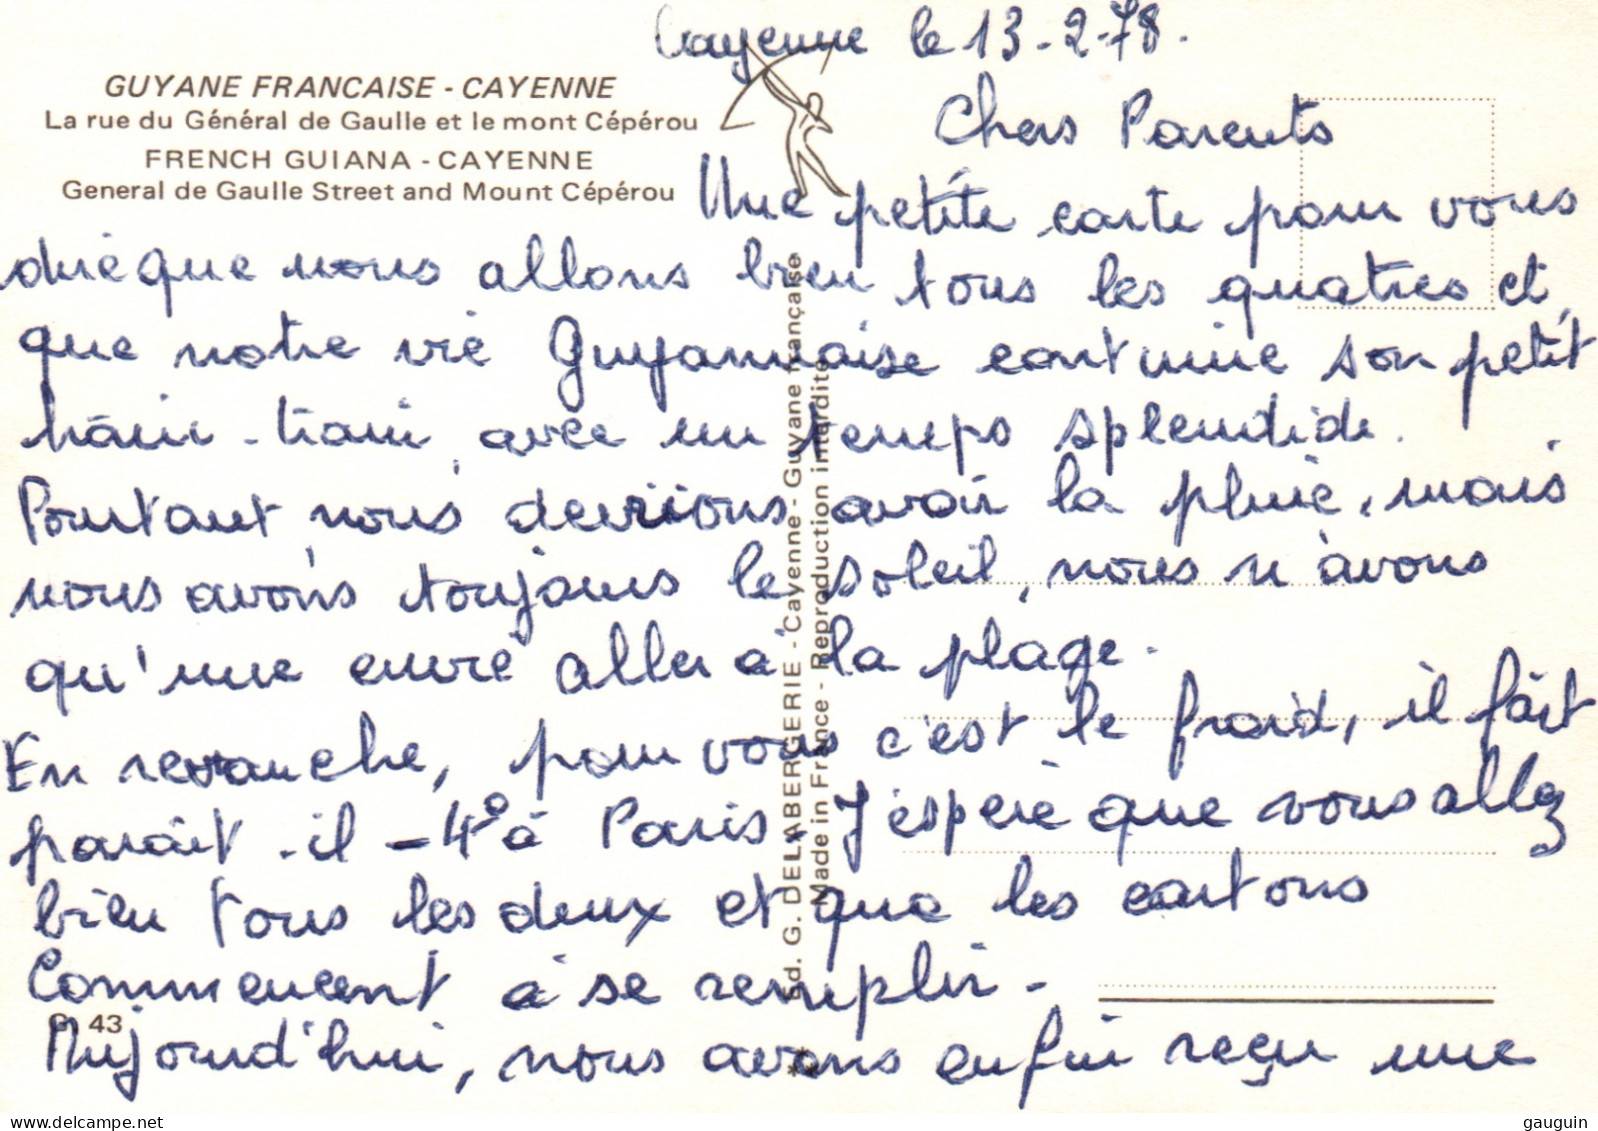 Cayenne le 13-2-78.
GUYANE FRANCAISE - CAYENNE
La rue du Général de Gaulle et le mont Cépérou
FRENCH GUIANA - CAYENNE
General de Gaulle Street and Mount Cépérou
Chers Parents
Une petite carte pour vous
dire que nous allons bien tous les quatres et
que notre vie Guyannaise continue son petit
train-train, avec un temps splendide.
Pourtant nous devrions avoir la pluie, mais
nous avons toujours le soleil, nous n'avons
qu'une envie aller à la plage.
En revanche, pour vous c'est le froid, il fait
parait-il -4° à Paris. J'espère que vous allez
bien tous les deux et que les cartons
commencent à se remplir -
Aujourd'hui, nous avons enfin reçu une
43
Ed. G. DELABERGERIE - Cayenne - Guyane française
Made in France - Reproduction interdite
www.delcampe.net
gauguin